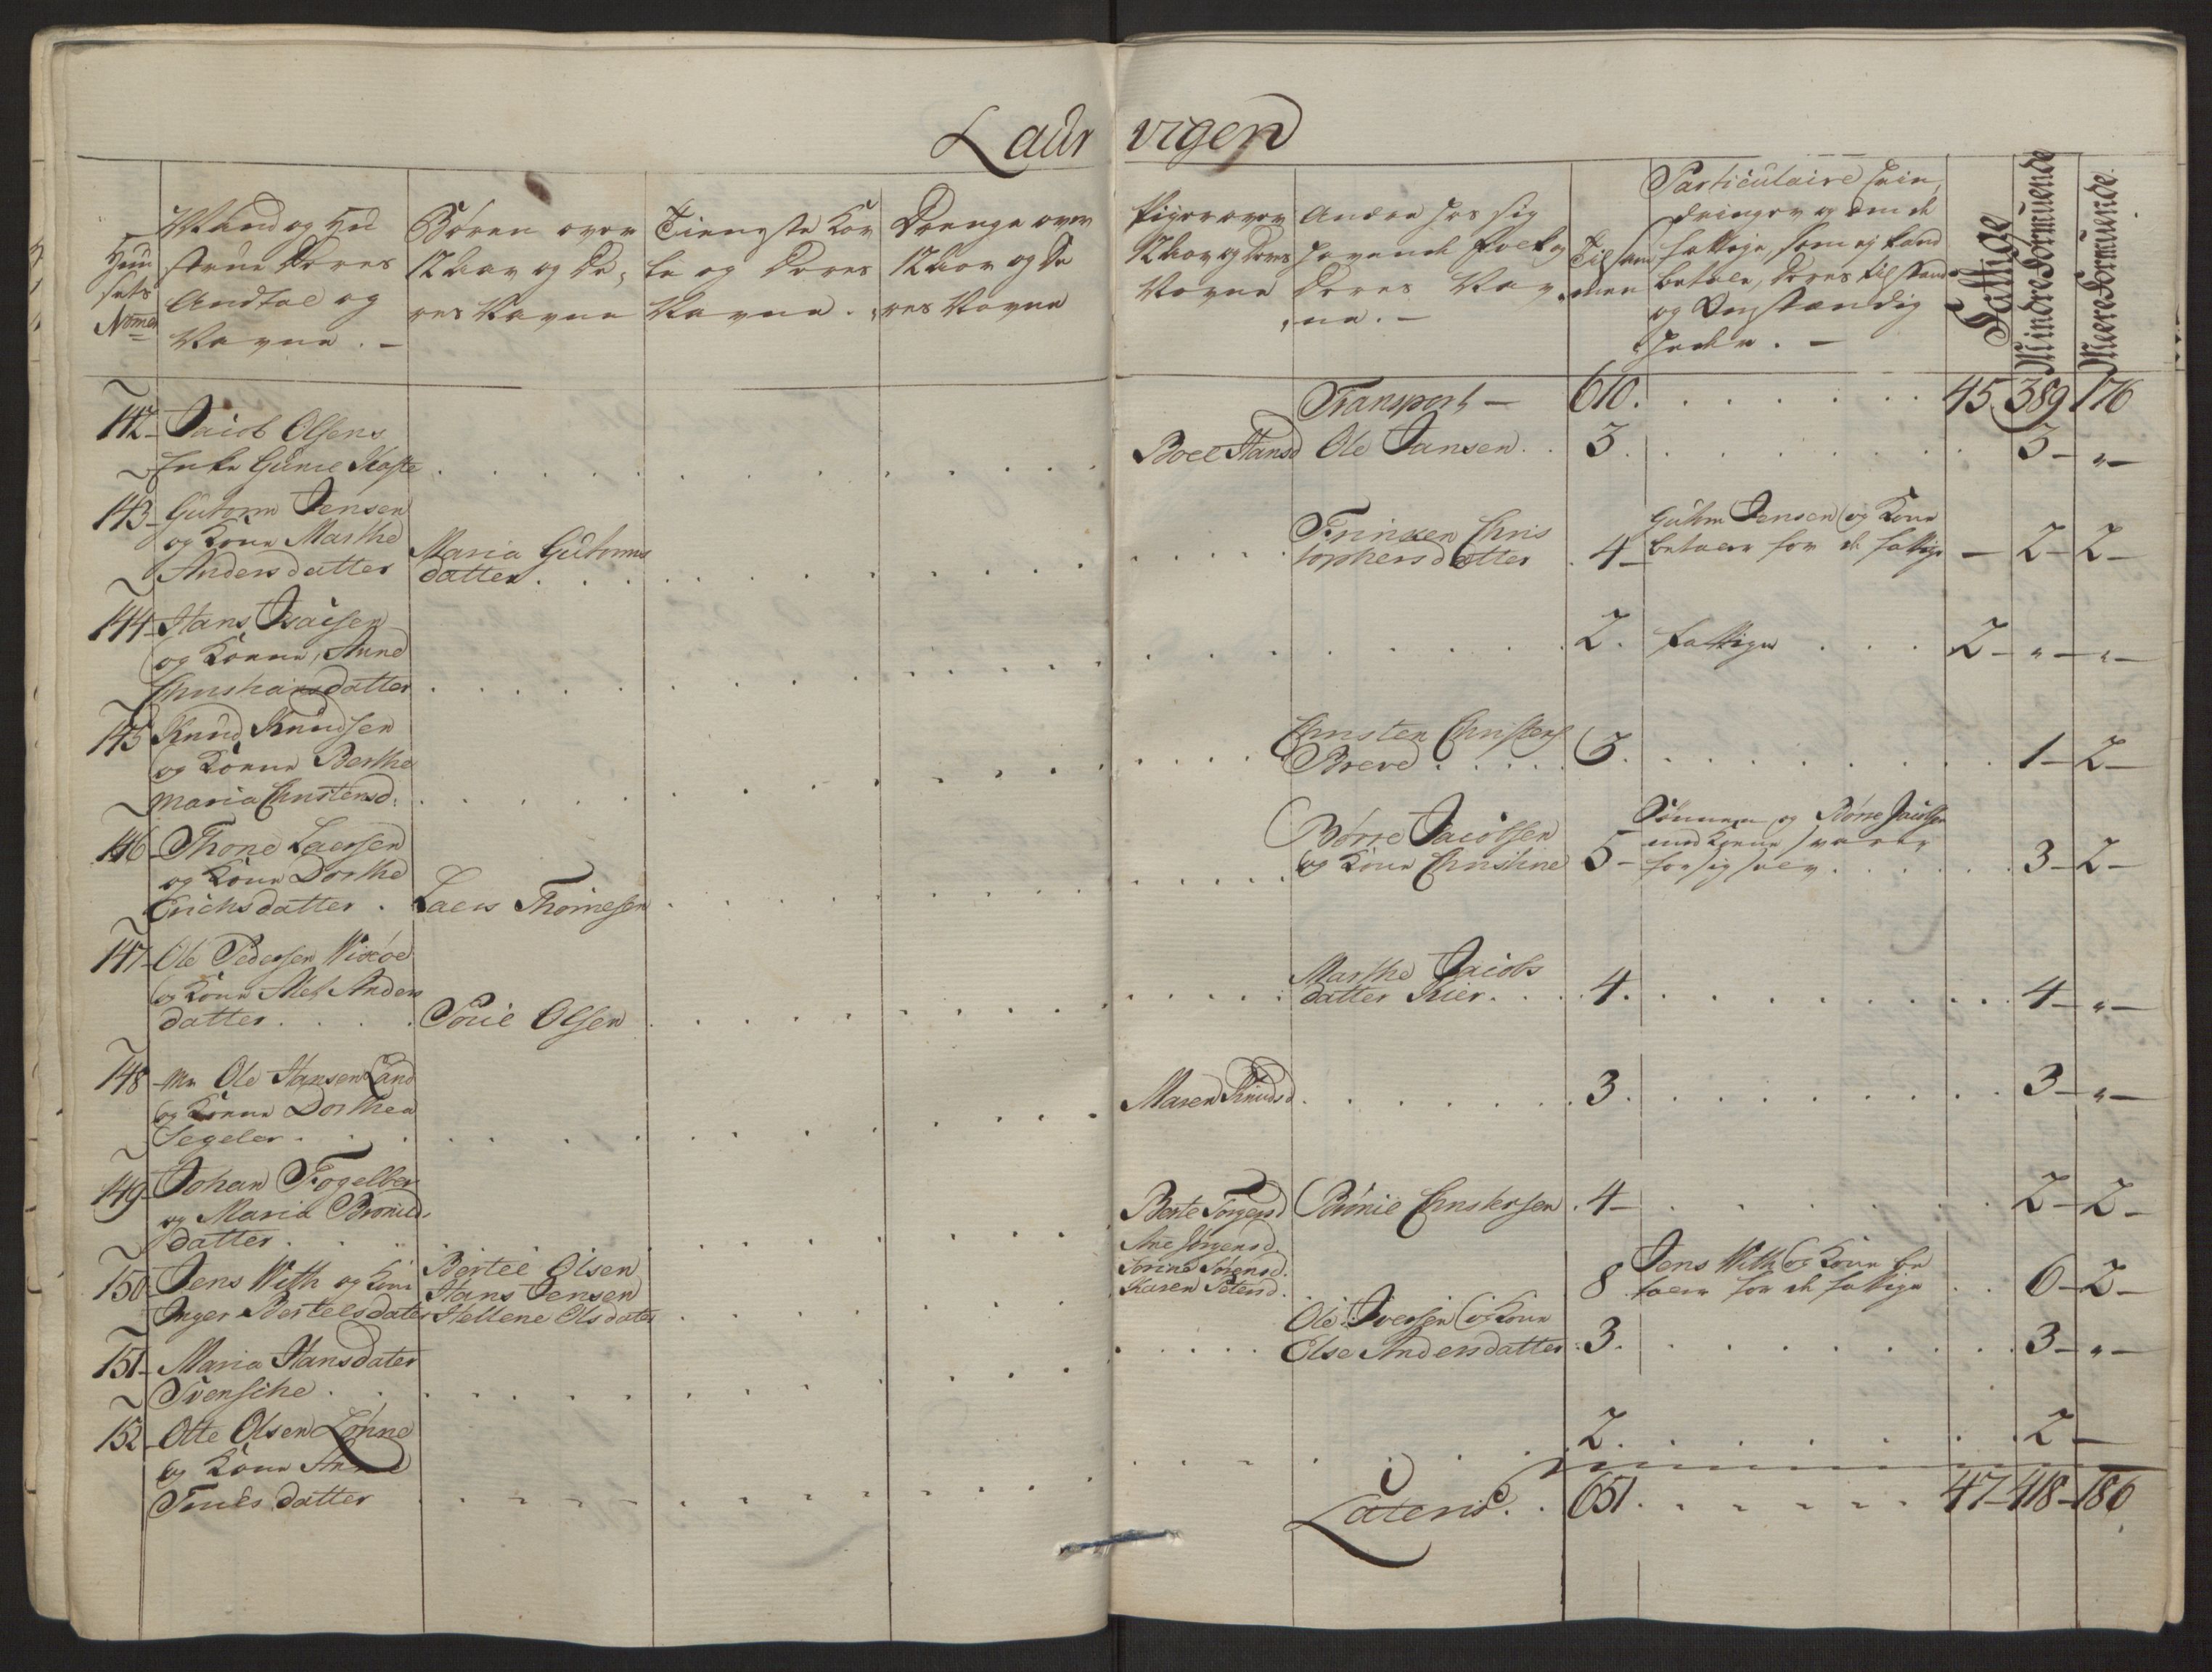 Laur vigen
Huu
sets
Nomer
Mand og Hu
struer Deres
Andtal og
Navne. -
Børen over
12 Aar og De,
res Navne
Tienste Kar
le og Deres
Navne.
Drenge over
12 Aar og De
res Navne
Piger over
12 Aar og Deres
Navne
Andre hos sig
havende Folk og
Deres Nav,
ne. -
Til sam
men
Particulaire
og de
fattige, som ej kand
betale, deres tilstand
og Omstændig
heder. -
Fattige
Mindre Formuende
Meere Formuende.
Transport - 610. 45 389 176
142 - Jacob Olsens
Enke Gunild Kaste
Boel Hansd Ole Jansen. . 3. 3 - " -
143 - Gutorm Jensen
og Kone Marthe
Andersdatter
Maria Gutorms
datter.
Trinken Chris
tophersdatter . 4 -
Gutm Jensen og Kone
betaler for de fattige - 2 - 2 -
144 - Hans Isacsen
og Konne, Anne
Christiansdatter
2. fattige 2 - " - " -
145 Knud Knudsen
og Konne Berthe
Maria Christensd.
Christen Christens
Breve 3. 1 - 2 -
146 - Thone Laersen
og Kone Dorthe
Erichsdatter .
Laers Thomesen
Børre Jacobsen
og Kone Christine 5 -
Sønnen og Børre Jacobsen
med Konne svarer
for sig selv. 3 - 2 -
147 - Ole Pedersen Wixøe
og Kone Met Anders
datter.
Povel Olsen
Marthe Jacobs
datter Kier. 4. 4 - " -
148 - Mr Ole Hansen Land
og Konne Dorthea
Segeler.
Maren Knudsd. 3. 3 - " -
149 - Johan Fogelber
og Maria Bronild
datter.
Berte Torgersd Brønie Christersen . 4 - 2 - 2 -
150 - Jens With og Kone
Inger Bertelsdater
Bertel Olsen
Hans Jensen
Hellene Olsdater
Ane Jørgensd.
Sorine Sørensd.
Karen Petersd.
8
Jens With og Kone be
taler for de fattige 6 - 2 -
151 - Maria Hansdater
Svensche.
Ole Iversen og Kone
Else Andersdatter . 3. 3 - " -
152 - Otte Olsen Lønne
og Kone Anne
datter
2. 2 -
Lateris. . 651. 47 - 418 - 186